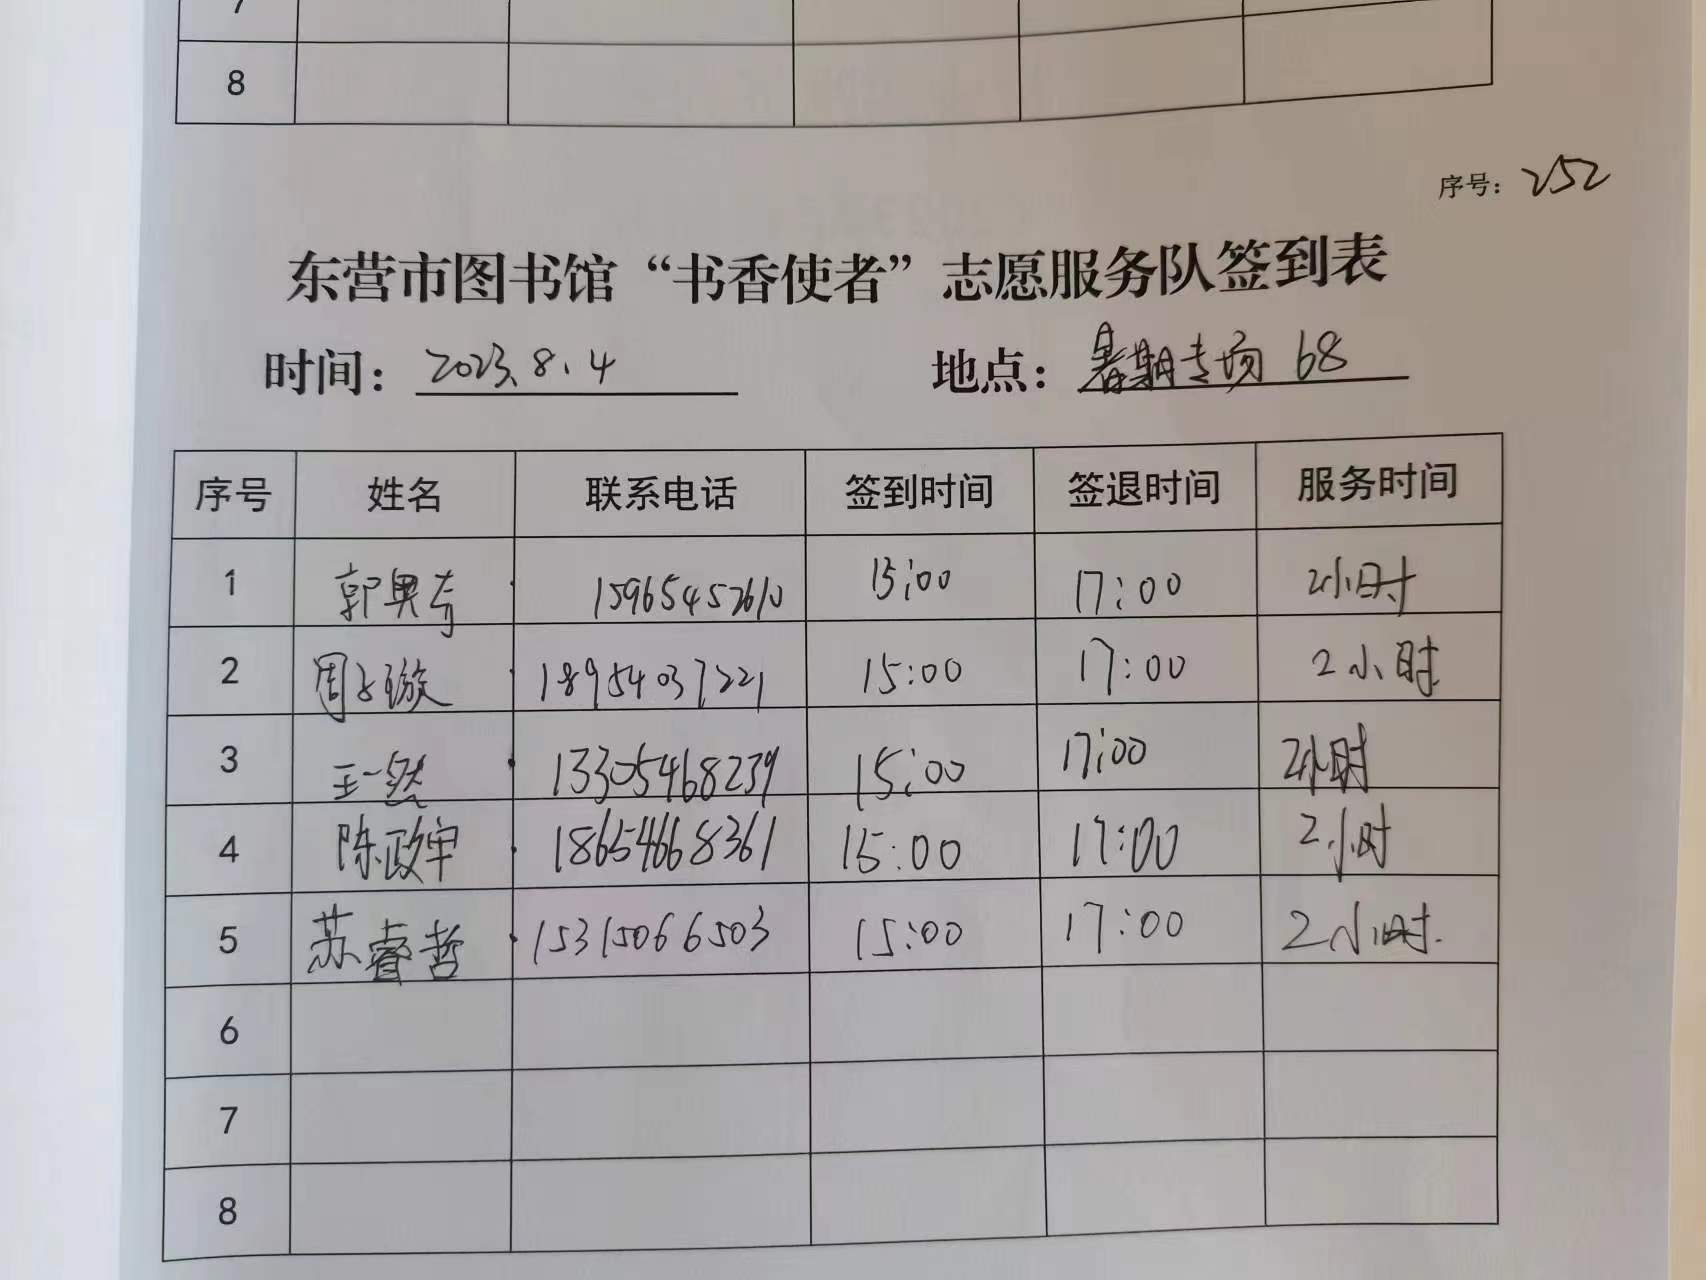 7
8
序号：252
东营市图书馆“书香使者”志愿服务队签到表
时间：2023.8.4 地点：暑期专场 68
序号 姓名 联系电话 签到时间 签退时间 服务时间
1 郭奥奇 15965452610 15:00 17:00 2小时
2 周子璇 18954037221 15:00 17:00 2小时
3 王一然 13305468239 15:00 17:00 2小时
4 陈政宇 18654668361 15:00 17:00 2小时
5 苏睿哲 15315066503 15:00 17:00 2小时
6
7
8